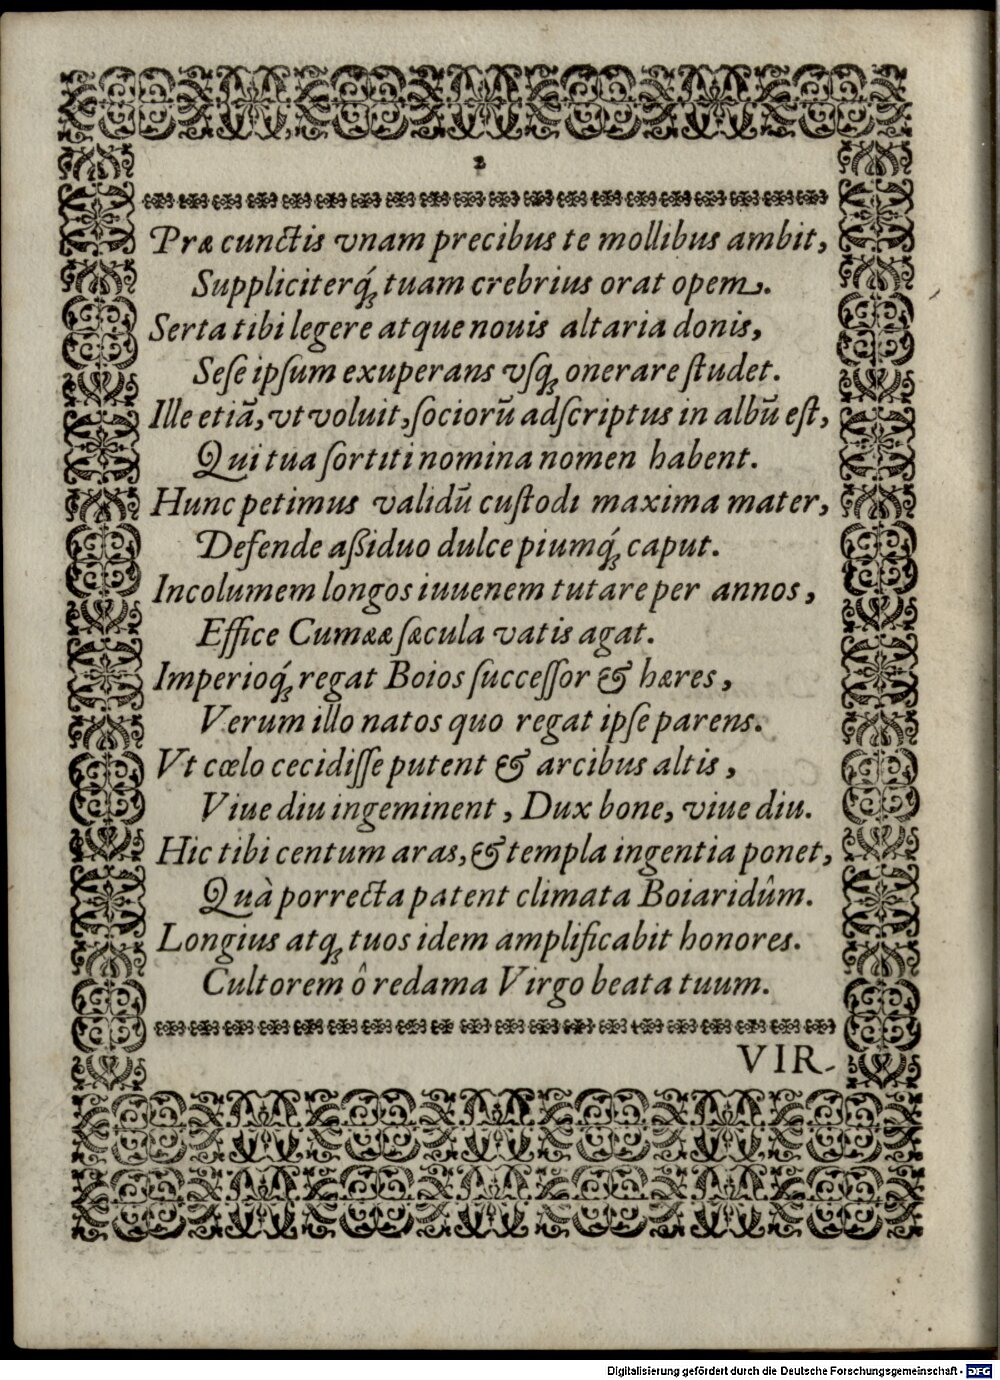 2
Præ cunctis vnam precibus te mollibus ambit,
Suppliciterq́; tuam crebrius orat opem.
Serta tibi legere atque nouis altaria donis,
Seſe ipſum exuperans vſq; onerare ſtudet.
Ille etiã, vt voluit, ſociorũ adſcriptus in albũ eſt,
Qui tua ſortiti nomina nomen habent.
Hunc petimus validũ cuſtodi maxima mater,
Defende aßiduo dulce piumq́; caput.
Incolumem longos iuuenem tutare per annos,
Effice Cumææ ſæcula vatis agat.
Imperioq́; regat Boios ſucceſſor & hæres,
Verum illo natos quo regat ipſe parens.
Vt cœlo cecidiſſe putent & arcibus altis,
Viue diu ingeminent, Dux bone, viue diu.
Hic tibi centum aras, & templa ingentia ponet,
Quà porrecta patent climata Boiaridûm.
Longius atq; tuos idem amplificabit honores.
Cultorem ô redama Virgo beata tuum.
VIR-
Digitalisierung gefördert durch die Deutsche Forschungsgemeinschaft - DFG